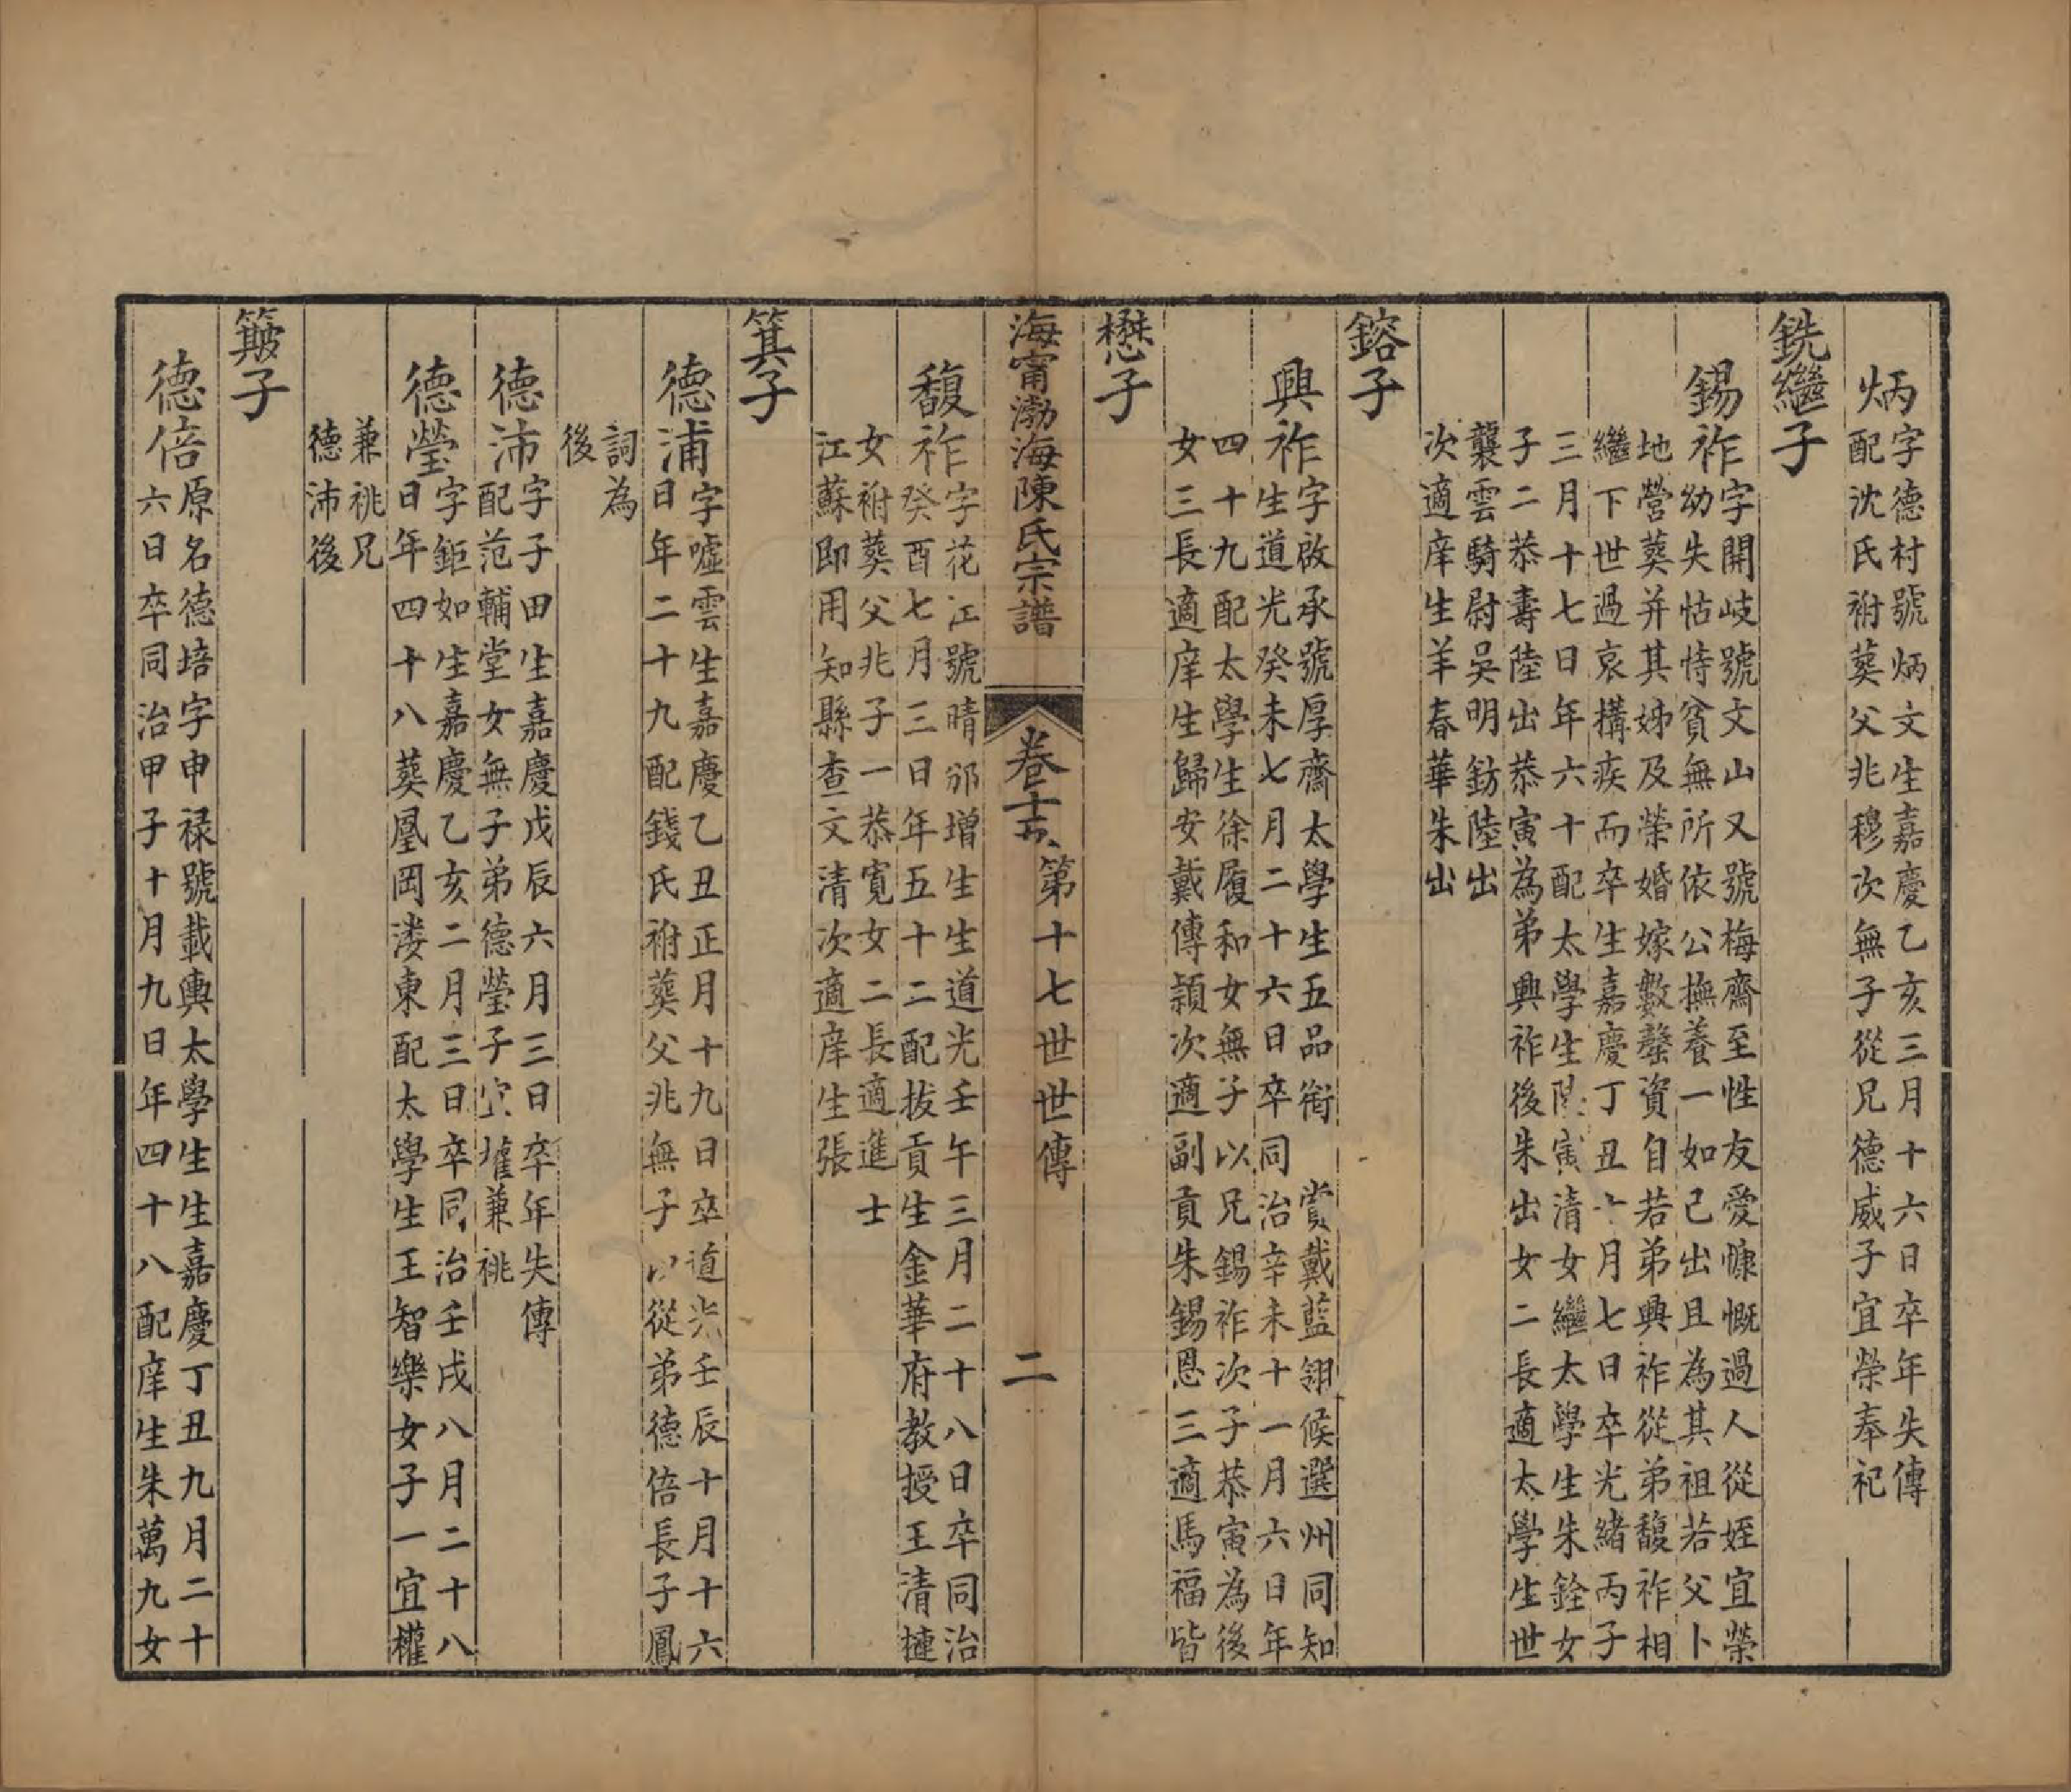 炳字德村號炳文生嘉慶乙亥三月十六日卒年失傳
配沈氏祔葬父兆穆次無子從兄德威子宜榮奉祀
銑繼子
錫祚字開岐號文山又號梅齋至性友愛慷慨過人從姪宜榮
幼失怙恃貧無所依公撫養一如己出且為其祖若父卜
地營葬并其姊及榮婚嫁數罄資自若弟興祚從弟馥祚相
繼下世過哀構疾而卒生嘉慶丁丑十月七日卒光緒丙子
三月十七日年六十配太學生陸寅清女繼太學生朱銓女
子二恭壽陸出恭寅為弟興祚後朱出女二長適太學生世
襲雲騎尉吳明鈁陸出
次適庠生羊春華朱出
鎔子
興祚字啟承號厚齋太學生五品銜 賞戴藍翎候選州同知
生道光癸未七月二十六日卒同治辛未十一月六日年
四十九配太學生徐履和女無子以兄錫祚次子恭寅為後
女三長適庠生歸安戴傳頴次適副貢朱錫恩三適馬福皆
懋子
海甯渤海陳氏宗譜 卷十六 第十七世世傳 二
馥祚字花江號晴邠增生生道光壬午三月二十八日卒同治
癸酉七月三日年五十二配拔貢生金華府教授王清槤
女祔葬父兆子一恭寬女二長適進士
江蘇即用知縣查文清次適庠生張
箕子
德浦字嘘雲生嘉慶乙丑正月十九日卒道光壬辰十月十六
日年二十九配錢氏祔葬父兆無子以從弟德倍長子鳳
詞為
後
德沛字子田生嘉慶戊辰六月三日卒年失傳
配范輔堂女無子弟德瑩子宜權兼祧
德瑩字鉅如生嘉慶乙亥二月三日卒同治壬戌八月二十八
日年四十八葬凰岡漊東配太學生王智樂女子一宜權
兼祧兄
德沛後
簸子
德倍原名德培字申禄號載輿太學生生嘉慶丁丑九月二十
六日卒同治甲子十月九日年四十八配庠生朱萬九女